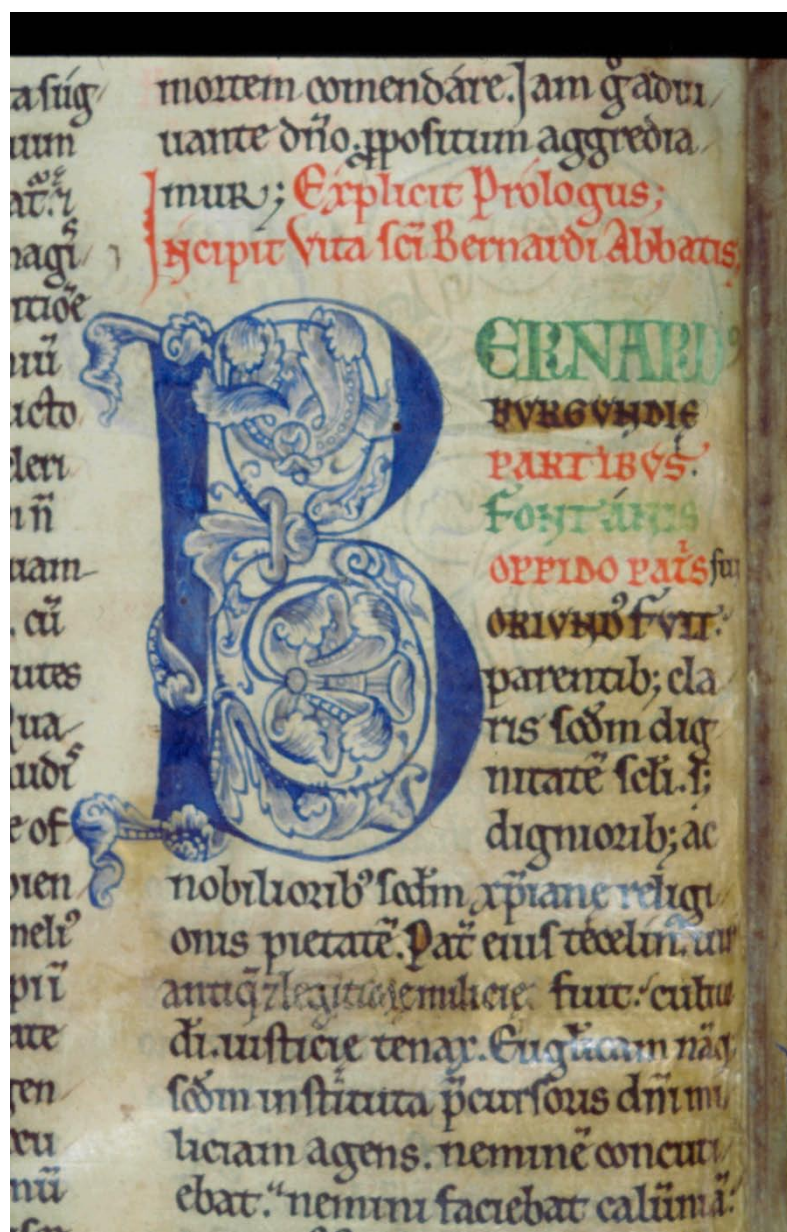 ta sug
uum
nagi
ntiōe
uū
ucto
leri
n n̄
uam
. cū
utes
qua
audi
e of
oien
neliꝰ
piī
ate
gen
ceu
mū
mortem cōmendare. Jam g̊ adiu
uante dn̄o. ꝓpositum aggredia
mur; Explicit Prologus;
Incipit Vita sc̄i Bernardi Abbatis,
BERNARDꝰ
BURGUNDIE
PARTIBUS.
FONTANIS
OPPIDO PAT͛S sui
ORIUNDꝰ FUIT.
parentib; cla
ris scd̄m dig
nitatē sc̄li. s;
dignorib; ac
nobilioribꝰ scd̄m xp̄iane religi
onis pietatē. Pat̄ eius tecelin᷒. uir
antiq̄ ⁊ legitime milicie fuit. cultor
dī. iusticie tenax. Eug̅licam nāq;
scd̄m instituta p̄cursoris dn̄i mi
liciam agens. neminē concuti
ebat. nemini faciebat calūniā.